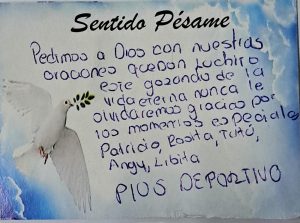 Sentido Pésame
Pedimos a Dios con nuestras
oraciones quedan Luchito
este gozando de la
vida eterna nunca le
olvidaremos gracias por
los momentos especiales
Patricio, Rosita, Tito,
Angy, Libita
PIUS DEPORTIVO